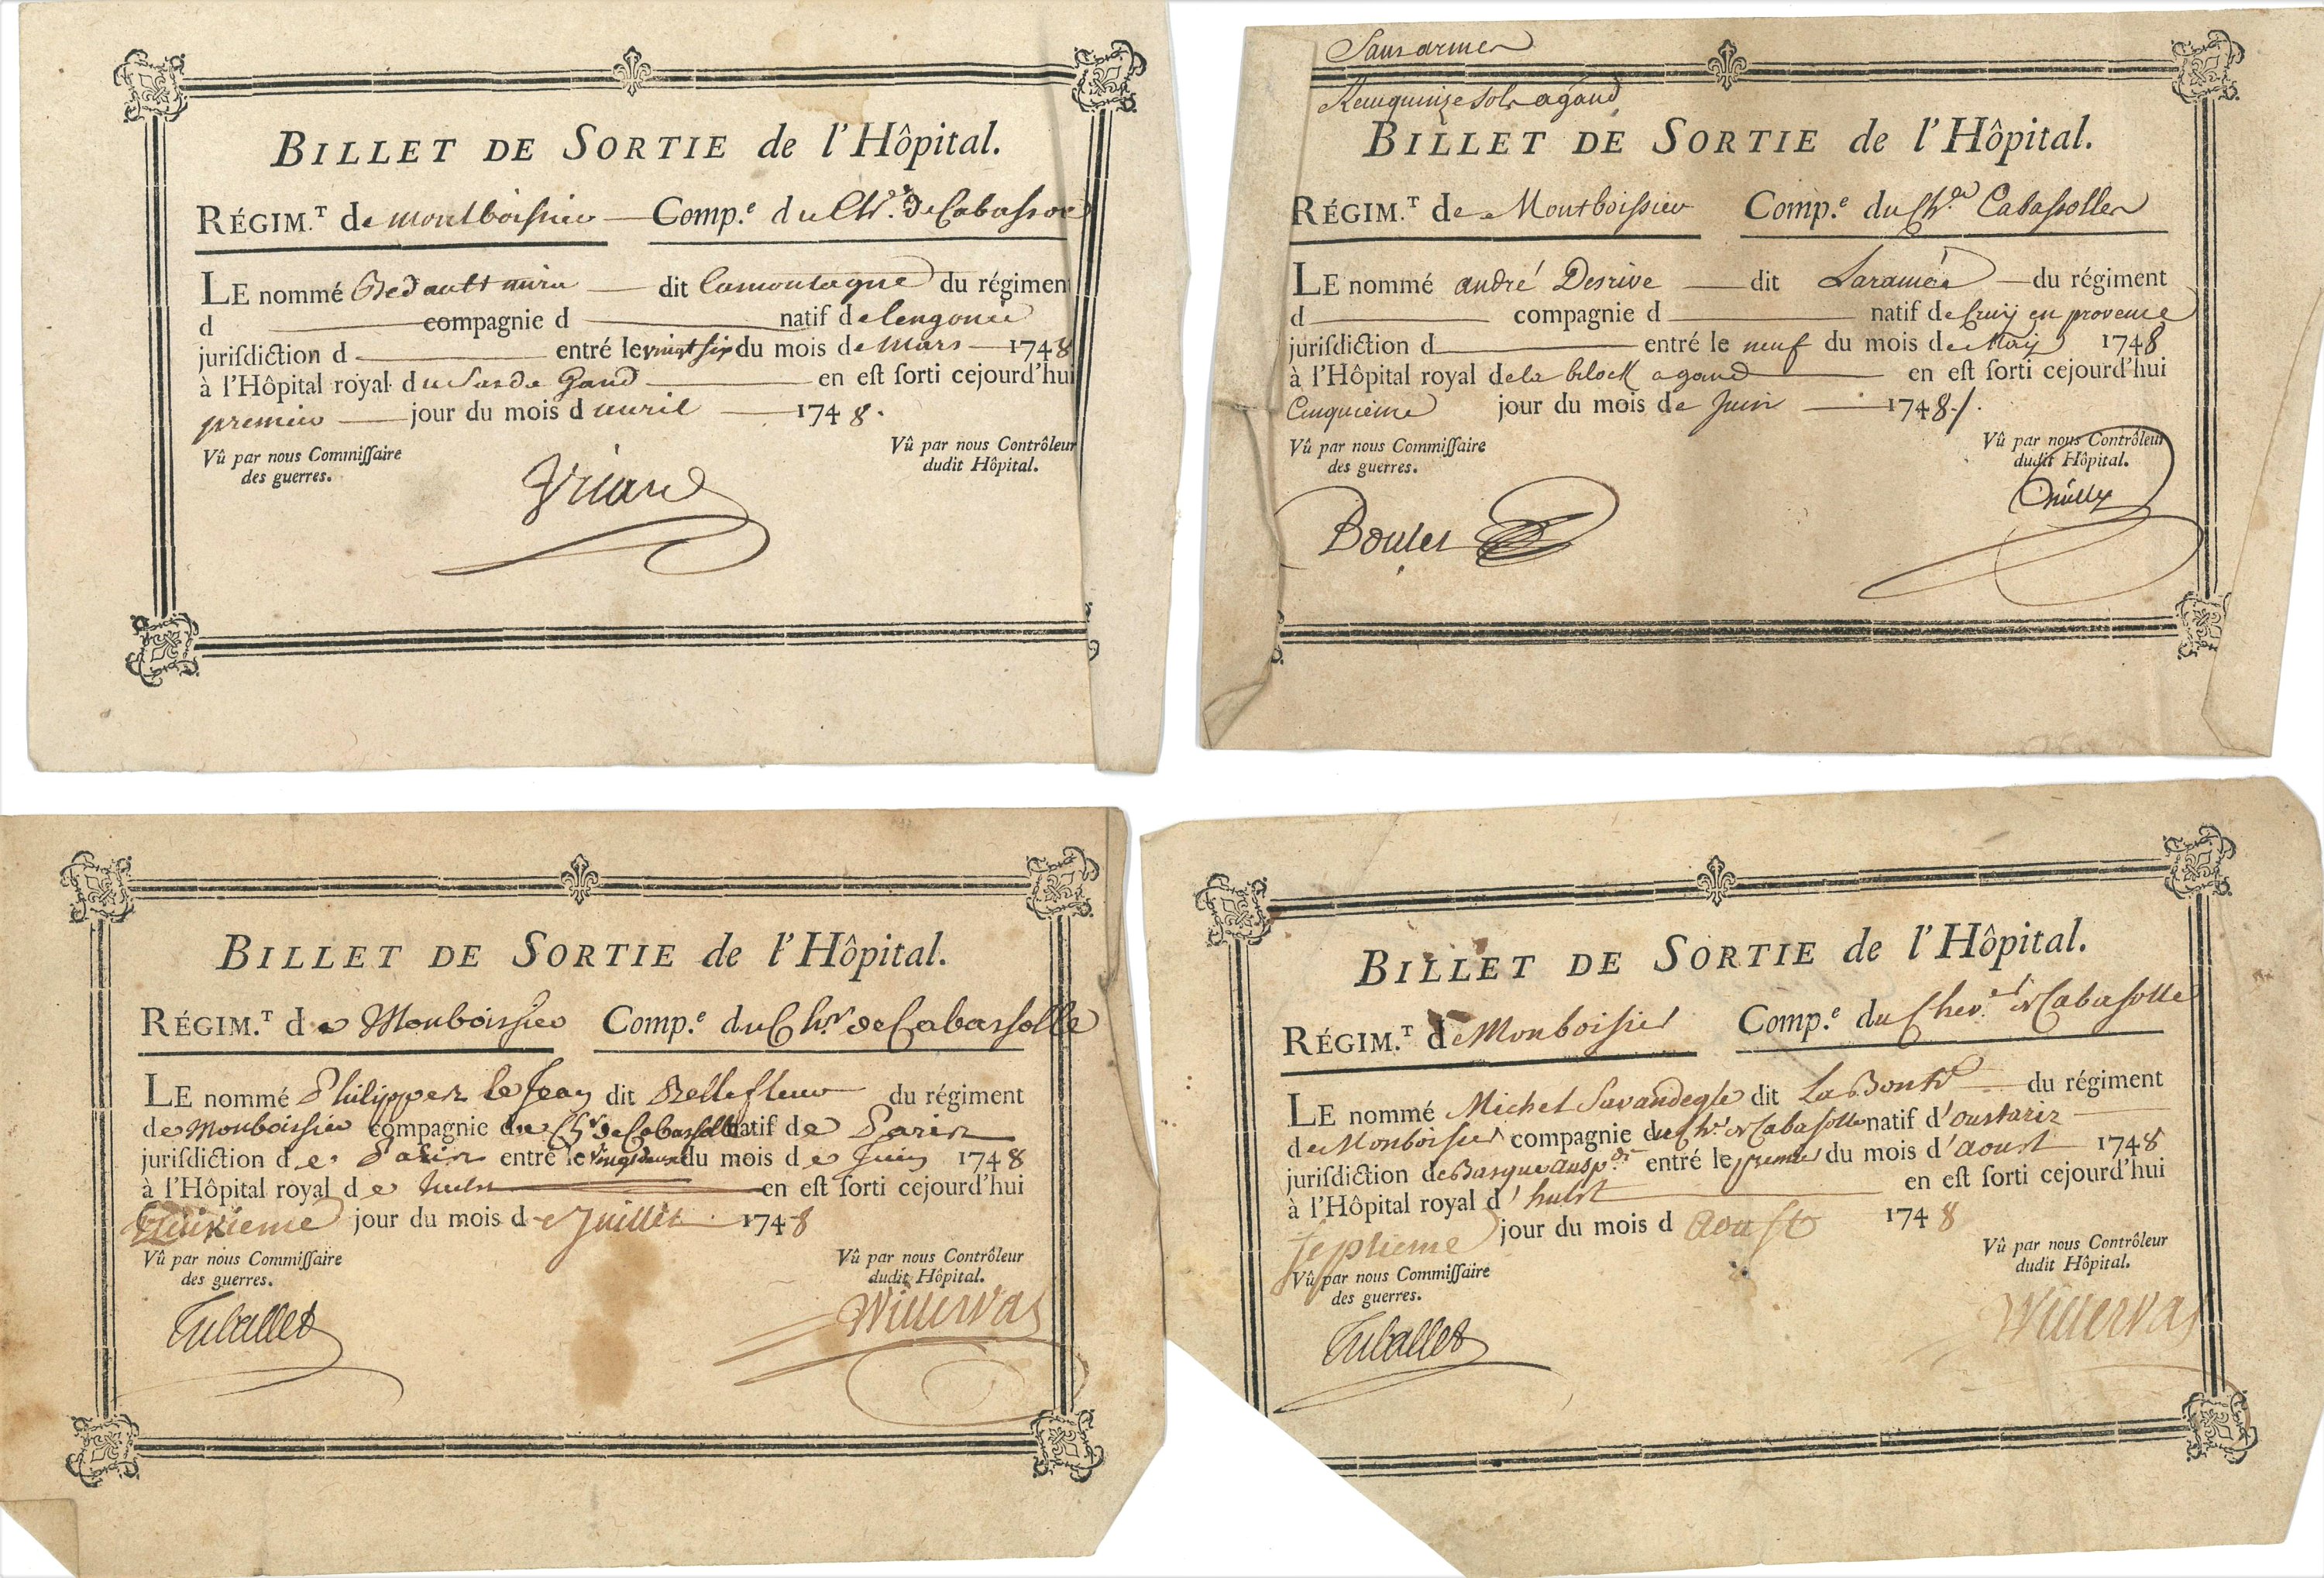 BILLET DE SORTIE de l'Hôpital.
RÉGIM.T de montboissier Comp.e du Chr. de Cabassole
LE nommé dit lamontagne du régiment
d compagnie d natif de
jurisdiction d entré le vingt six du mois de Mars 1748
à l'Hôpital royal du Sas de Gand en est sorti cejourd'hui
premier jour du mois d avril 1748.
Vû par nous Commissaire
des guerres.
Vû par nous Contrôleur
dudit Hôpital.
Sans armes
quinze sols a gand
BILLET DE SORTIE de l'Hôpital.
RÉGIM.T de Montboissier Comp.e du Chr. de Cabassolles
LE nommé andré Desrive dit Laramée du régiment
d compagnie d natif de en provence
jurisdiction d entré le neuf du mois de May 1748
à l'Hôpital royal de la block a gand en est sorti cejourd'hui
Cinquieme jour du mois de Juin 1748./.
Vû par nous Commissaire
des guerres.
Vû par nous Contrôleur
dudit Hôpital.
Boulet
BILLET DE SORTIE de l'Hôpital.
RÉGIM.T de Monboissier Comp.e du Chr. de Cabassolle
LE nommé Philippes le Jean dit Bellefleur du régiment
de Monboissier compagnie du Chr. de Cabassolle natif de Paris
jurisdiction de Paris entré le vingt deux du mois de Juin 1748
à l'Hôpital royal de hulst en est sorti cejourd'hui
jour du mois de Juillet 1748
Vû par nous Commissaire
des guerres.
Vû par nous Contrôleur
dudit Hôpital.
Willervas
BILLET DE SORTIE de l'Hôpital.
RÉGIM.T de Monboissier Comp.e du Cher. de Cabasolle
LE nommé Michel dit La Bonté du régiment
de Monboissier compagnie du Chr. de Cabasolle natif d'oustariz
jurisdiction de Basque entré le premier du mois d'aoust 1748
à l'Hôpital royal d'hulst en est sorti cejourd'hui
septieme jour du mois d aoust 1748
Vû par nous Commissaire
des guerres.
Vû par nous Contrôleur
dudit Hôpital.
Willervas